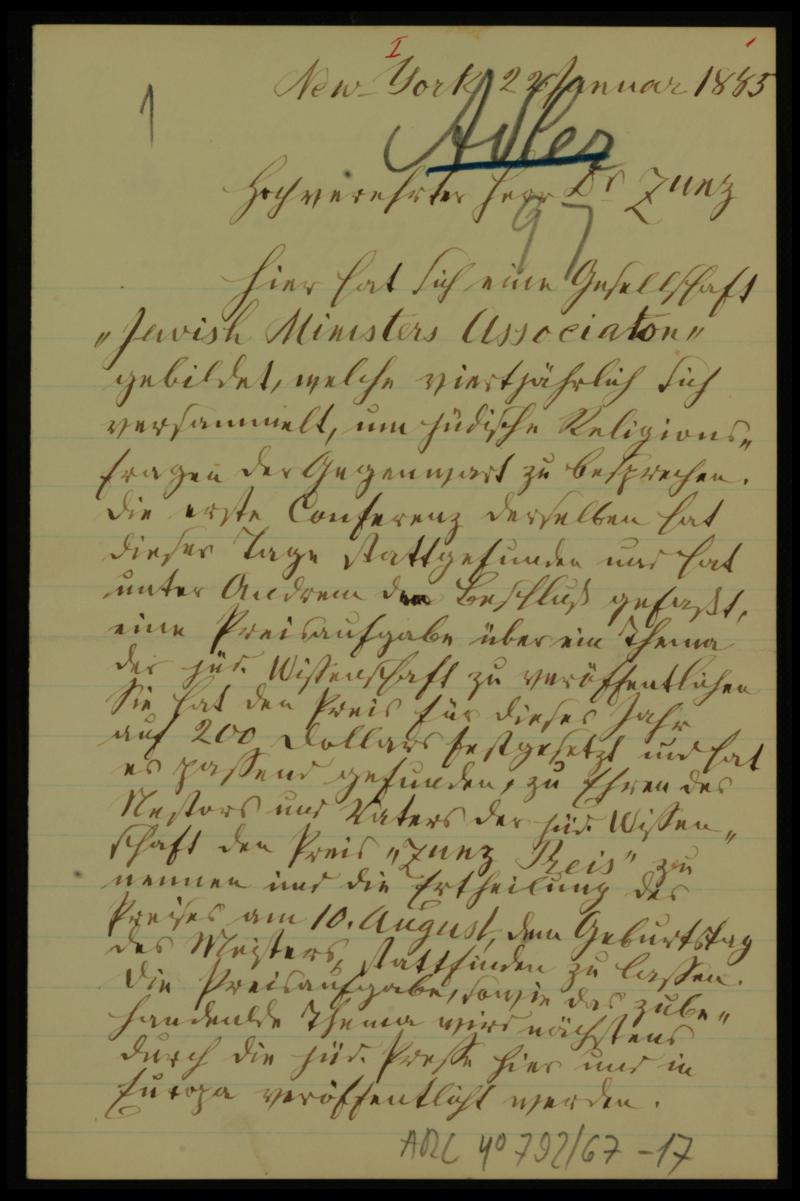 I
1
New-York 22 Januar 1885
Adler
Hochverehrter Herr Dr Zunz
97
Hier hat sich eine Gesellschaft
„Jewish Ministers Association„
gebildet, welche viertjährlich sich
versammelt, um jüdische Religions„
fragen der Gegenwart zu besprechen.
Die erste Conferenz derselben hat
dieser Tage stattgefunden und hat
unter Andrem den Beschluß gefaßt,
eine Preisaufgabe über ein Thema
der jüd. Wissenschaft zu veröffentlichen
Sie hat den Preis für dieses Jahr
auf 200 Dollars festgesetzt und hat
es passend gefunden, zu Ehren des
Nestors und Vaters der jüd. Wissen„
schaft den Preis „Zunz Preis" zu
nennen und die Ertheilung des
Preises am 10. August, dem Geburtstag
des Meisters, stattfinden zu lassen.
Die Preisaufgabe, sowie das zube„
handelnde Thema wird nächstens
durch die jüd. Presse hier und in
Europa veröffentlicht werden.
ARC 4° 792/G7-17